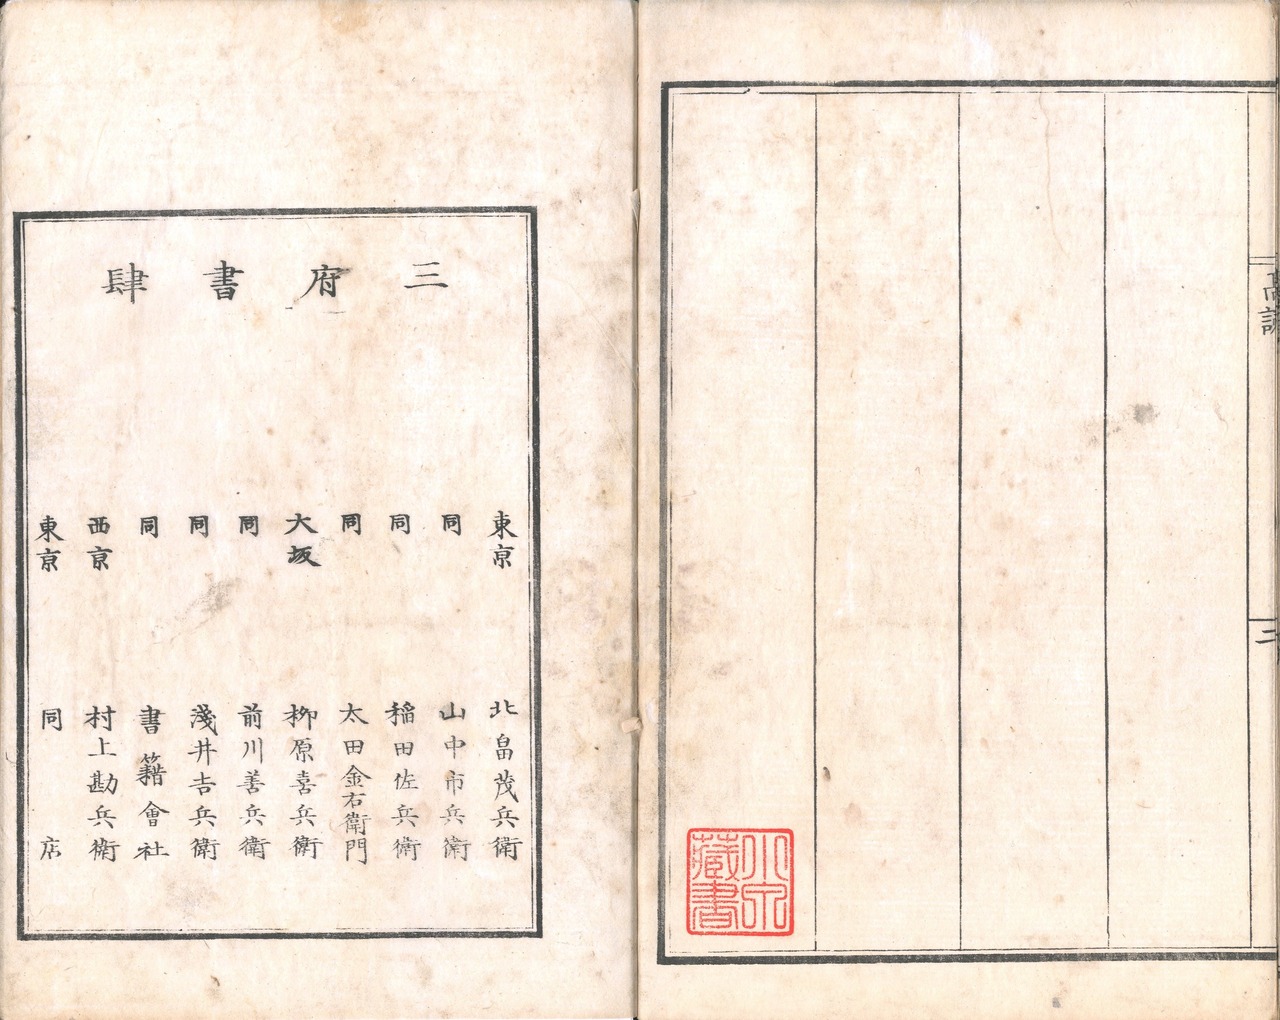 藏書
三府書肆
東亰 北畠茂兵衛
同 山中市兵衛
同 稲田佐兵衛
同 太田金右衛門
大坂 柳原喜兵衛
同 前川善兵衛
同 淺井吉兵衛
同 書籍會社
西亰 村上勘兵衛
東亰 同店